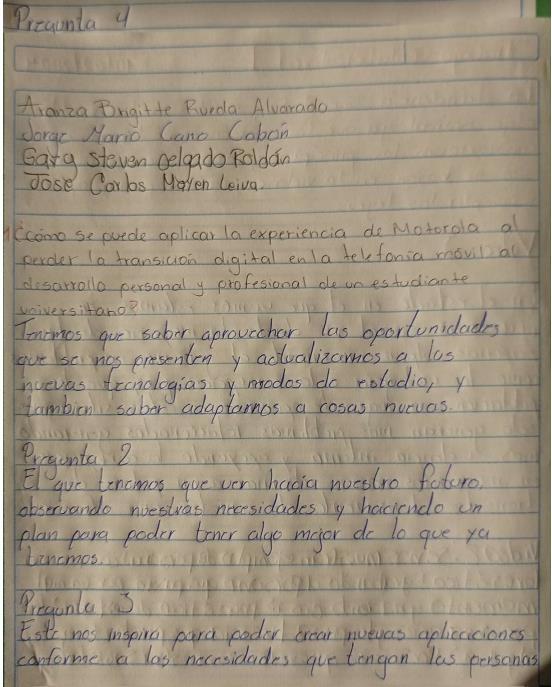 Pregunta 4
Aranza Brigitte Rueda Alvarado
Jorge Mario Cano Cobón
Gary Steven Delgado Roldán
Jose Carlos Mayen Leiva.
1 ¿Cómo se puede aplicar la experiencia de Motorola al
perder la transición digital en la telefonia móvil al
desarrollo personal y profesional de un estudiante
universitario?
Tenemos que saber aprovechar las oportunidades
que se nos presenten y actualizarnos a las
nuevas tecnologías y modos de estudio, y
tambien saber adaptarnos a cosas nuevas.
Pregunta 2
El que tenemos que ver hacia nuestro futuro,
observando nuestras necesidades y haciendo un
plan para poder tener algo mejor de lo que ya
tenemos.
Pregunta 3
Este nos inspira para poder crear nuevas aplicaciones
conforme a las necesidades que tengan las personas